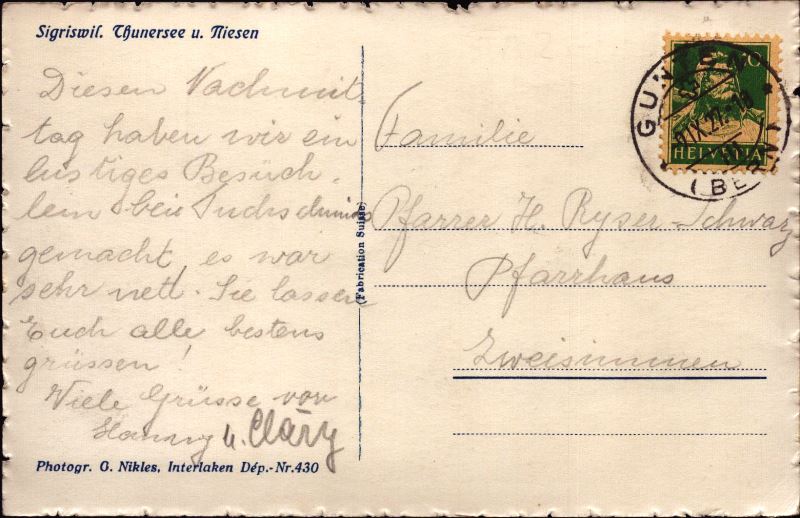 Sigriswil. Thunersee u. Niesen
Diesen Nachmit-
tag haben wir ein
lustiges Besuch-
lein bei
gemacht, es war
sehr nett. Sie lassen
Euch alle bestens
grüssen!
Viele Grüsse von
Hanny u. Cläry
Photogr. G. Nikles, Interlaken Dép.-Nr. 430
(Fabrication Suisse)
Familie
Pfarrer H. Ryser-Schwarz
Pfarrhaus
Zweisimmen
10
HELVETIA
GUNTEN
(BERN)